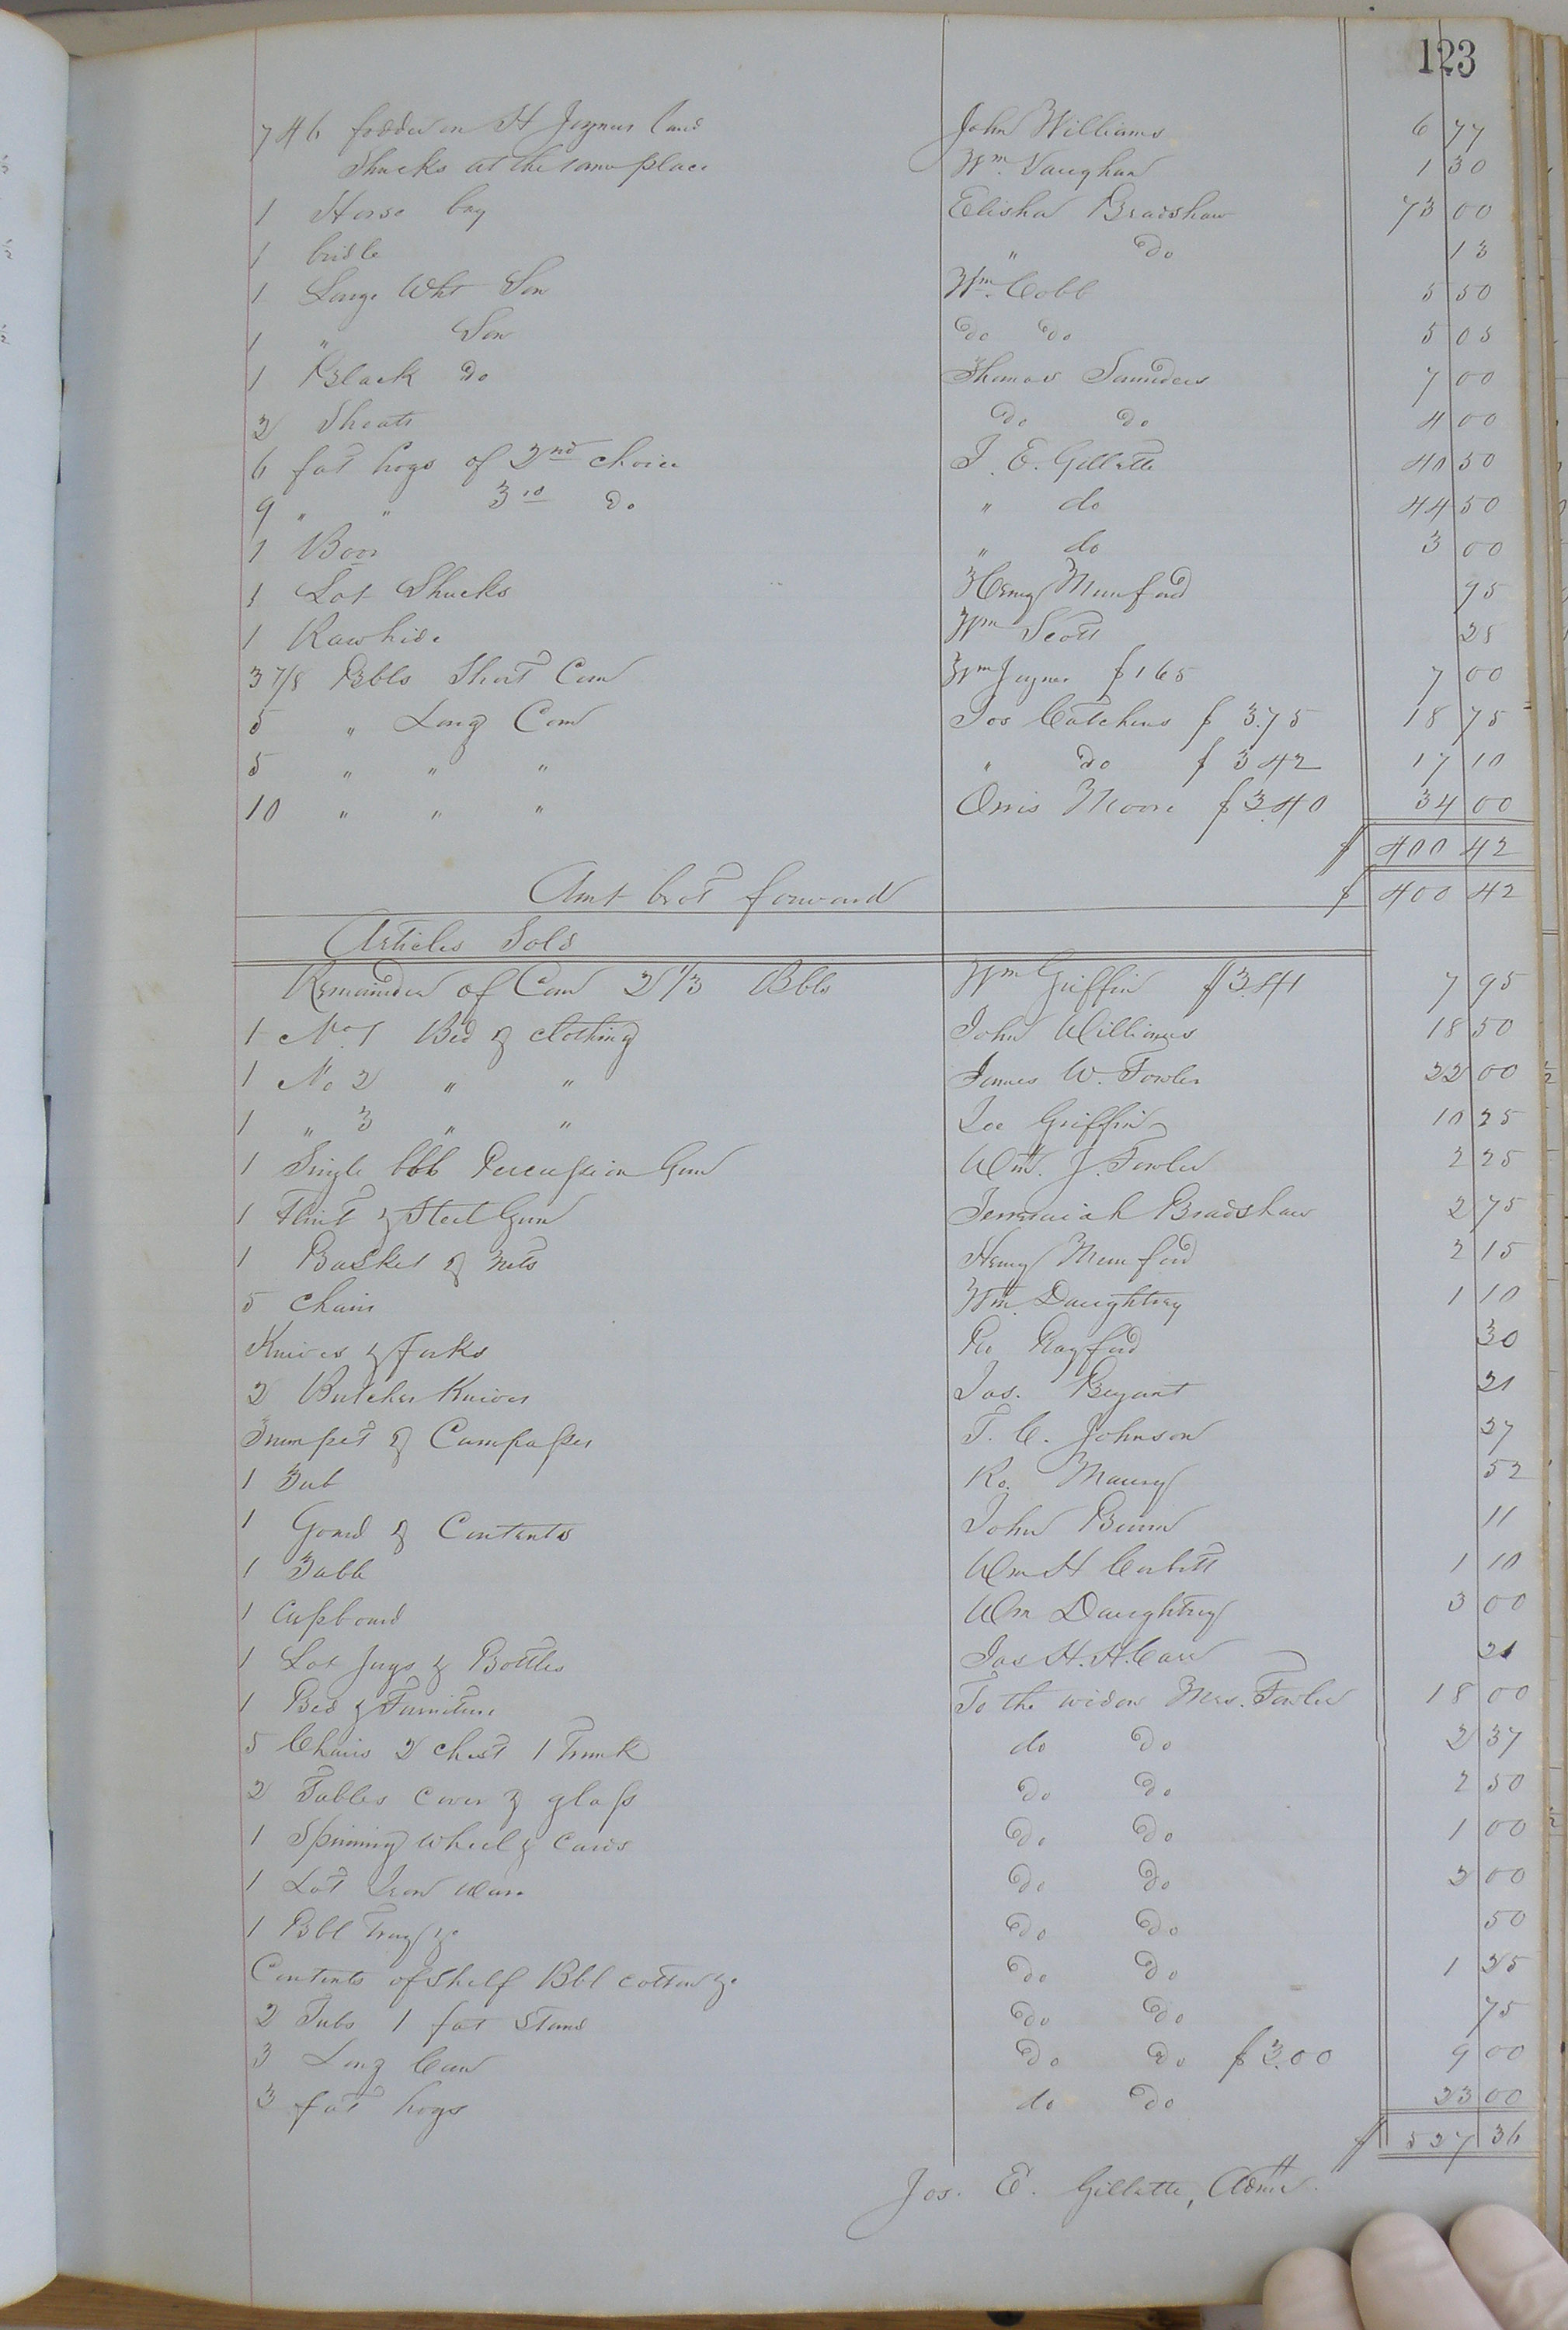 123
746 fodder on H Joyners land John Williams 6 77
Shucks at the same place Wm. Vaughan 1 30
1 Horse bay Elisha Bradshaw 73 00
1 bridle " do 13
1 Large Wht Sow Wm. Cobb 5 50
1 " Sow do do 5 05
1 Black do Thomas Saunders 7 00
2 Shoats do do 4 00
6 fat hogs of 2nd choice J. E. Gillette 40 50
9 " " 3rd do " do 44 50
1 Boar " do 3 00
1 Lot Shucks Henry Mumford 95
1 Rawhide Wm Scott 25
3 7/8 Bbls Short Corn Wm Joyner $165 7 00
5 " Long Corn Jos Cutchins $ 3.75 18 75
5 " " " " do $ 3 42 17 10
10 " " " Orris Moore $ 3.40 34 00
$ 400 42
Amt brot forward $ 400 42
Articles Sold
Remainder of Corn 2 1/3 Bbls Wm Griffin $3.41 7 95
1 No. 1 Bed & clothing John Williams 18 50
1 No 2 " " James W. Fowler 22 00
1 " 3 " " Joe Griffin 10 25
1 Single bbl Percussion Gun Wm. J. Fowler 2 25
1 Flint & Steel Gun Jeremiah Bradshaw 2 75
1 Basket & Nets Henry Mumford 2 15
5 Chairs Wm. Daughtrey 1 10
Knives & forks Ro Rayford 30
2 Butcher Knives Jas. Bryant 21
Trumpet & Compasses T. C. Johnson 37
1 Tub Ro. Maury 52
1 Gourd & Contents John Bunn 11
1 Table Wm H Corbitt 1 10
1 Cupboard Wm Daughtrey 3 00
1 Lot Jugs & Bottles Jas H. H. Carr 21
1 Bed & Furniture To the widow Mrs. Fowler 18 00
5 Chairs 2 chest 1 Trunk do do 2 37
2 Tables cover & glass do do 2 50
1 Spinning wheel & Cards do do 1 00
1 Lot Iron Ware do do 2 00
1 Bbl Tray &c do do 50
Contents of Shelf Bbl cotton &c do do 1 25
2 Tubs 1 fat Stand do do 75
3 Long Corn do do $ 3.00 9 00
3 fat hogs do do 23 00
$ 527 36
Jos. E. Gillette, Admr.